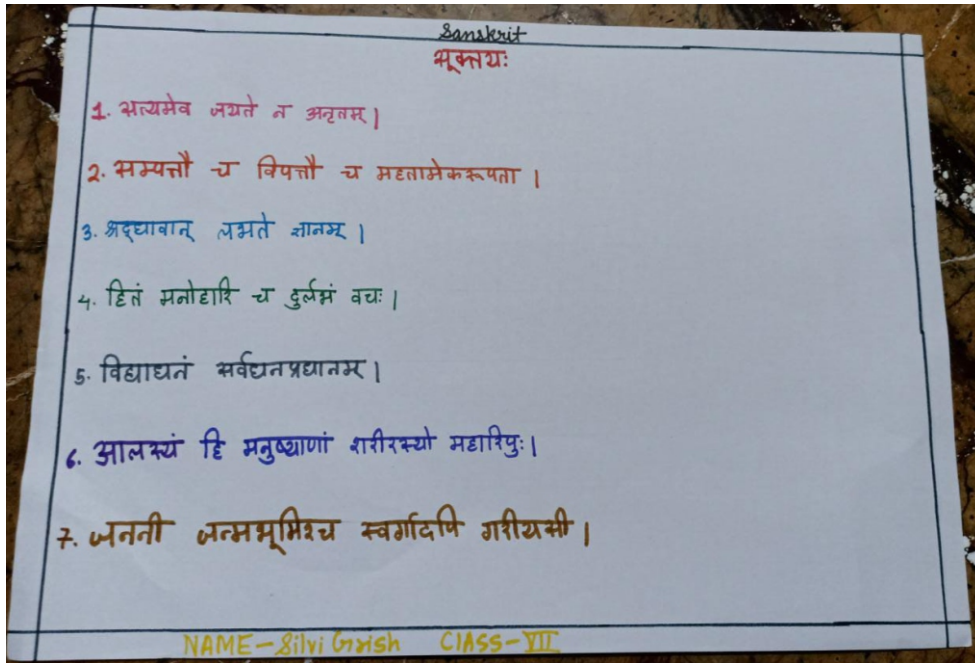 Sanskrit
सूक्तयः
1. सत्यमेव जयते न अनृतम् ।
2. सम्पत्तौ च विपत्तौ च महतामेकरूपता ।
3. श्रद्धावान् लभते ज्ञानम् ।
4. हितं मनोहारि च दुर्लभं वचः ।
5. विद्याधनं सर्वधनप्रधानम् ।
6. आलस्यं हि मनुष्याणां शरीरस्यो महारिपुः ।
7. जननी जन्मभूमिश्च स्वर्गादपि गरीयसी ।
NAME - Silvi Girish CLASS - VII